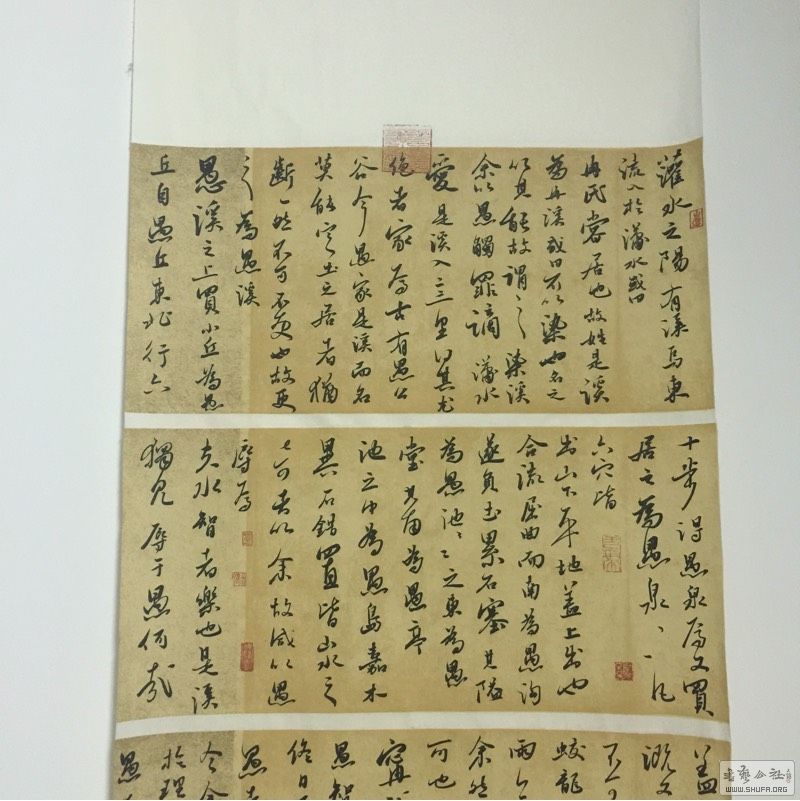 灌水之陽有溪焉東
流入於瀟水或曰
冉氏嘗居也故姓是溪
為冉溪或曰可以染也名之
以其能故謂之染溪
余以愚觸罪謫瀟水
愛是溪入二三里得其尤
絕者家焉古有愚公
谷今愚家是溪而名
莫能定土之居者猶
斷斷然不可不更也故更
之為愚溪
愚溪之上買小丘為愚
丘自愚丘東北行六
十步得愚泉焉又買
居之為愚泉愚泉凡
六穴皆
出山下平地蓋上出也
合流屈曲而南為愚溝
遂負土累石塞其隘
為愚池愚池之東為愚
堂其南為愚亭
池之中為愚島嘉木
異石錯置皆山水之
奇者以余故咸以愚
辱焉
夫水智者樂也是溪
獨見辱于愚何哉
蓋
溉又
不可
蛟龍
雨
余然
可也
甯
愚智
終日
愚
今余
於理
愚
書藝公社
WWW.SHUFA.ORG